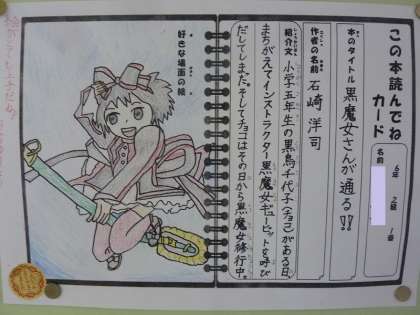 この本読んでね
カード
6年 2組 1番
名前
本のタイトル 黒魔女さんが通る!!
作者の名前 石崎 洋司
紹介文 小学五年生の黒鳥千代子(チョコ)がある日、
まちがえてインストラクター黒魔女ギュービットを呼び
だしてしまた。そしてチョコはその日から黒魔女修行中。
好きな場面の絵